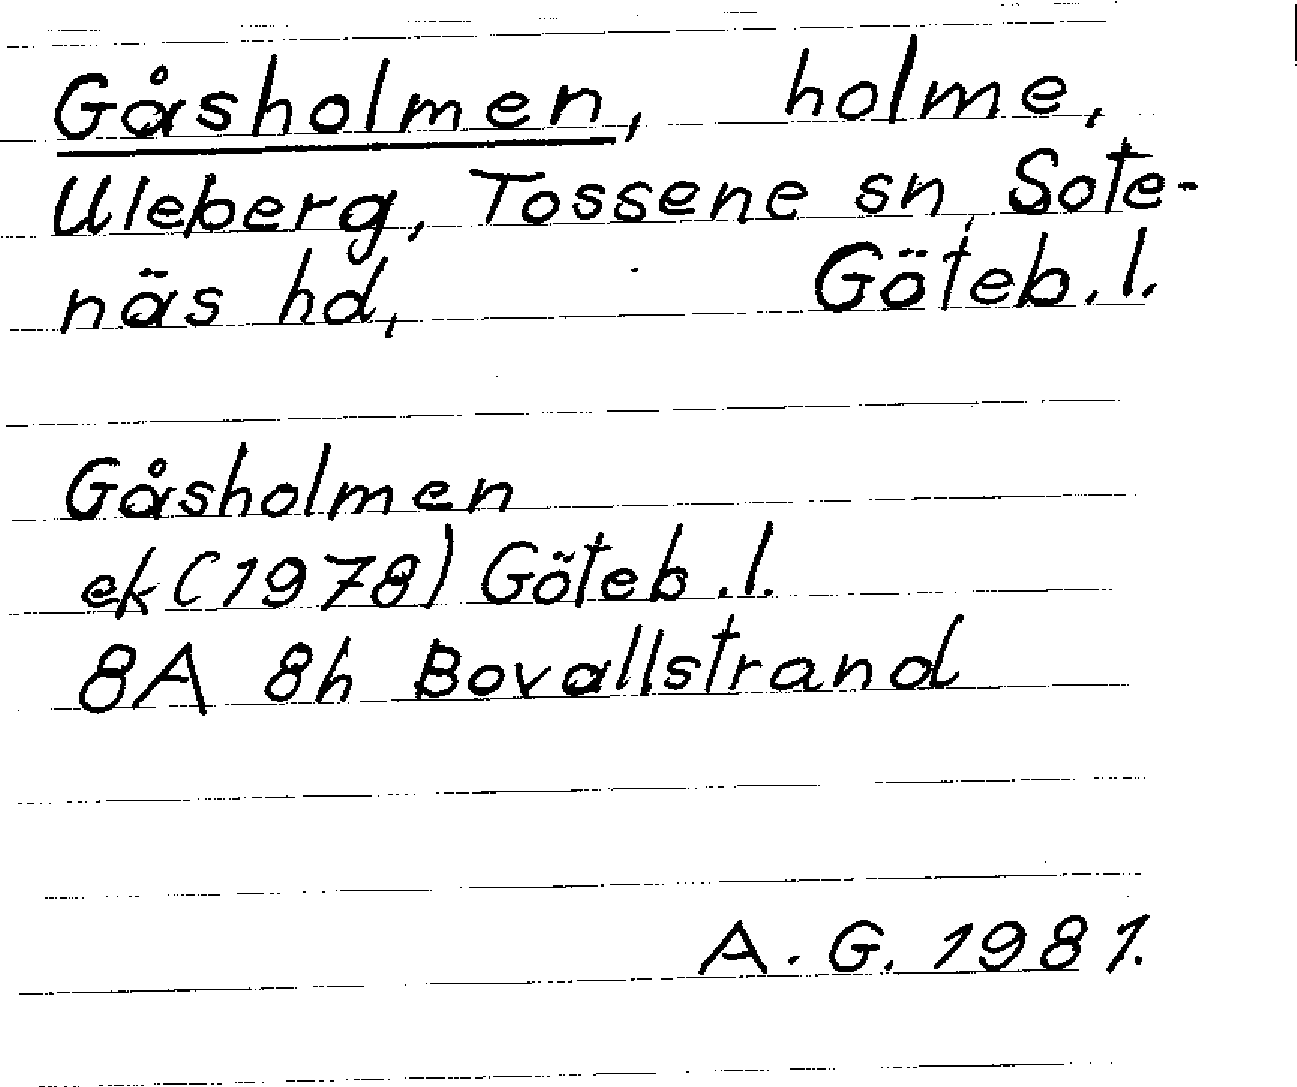 Gåsholmen, holme,
Uleberg, Tossene sn, Sote-
näs hd, Göteb. l.
Gåsholmen
ek (1978) Göteb. l.
8A 8h Bovallstrand
A. G. 1981.